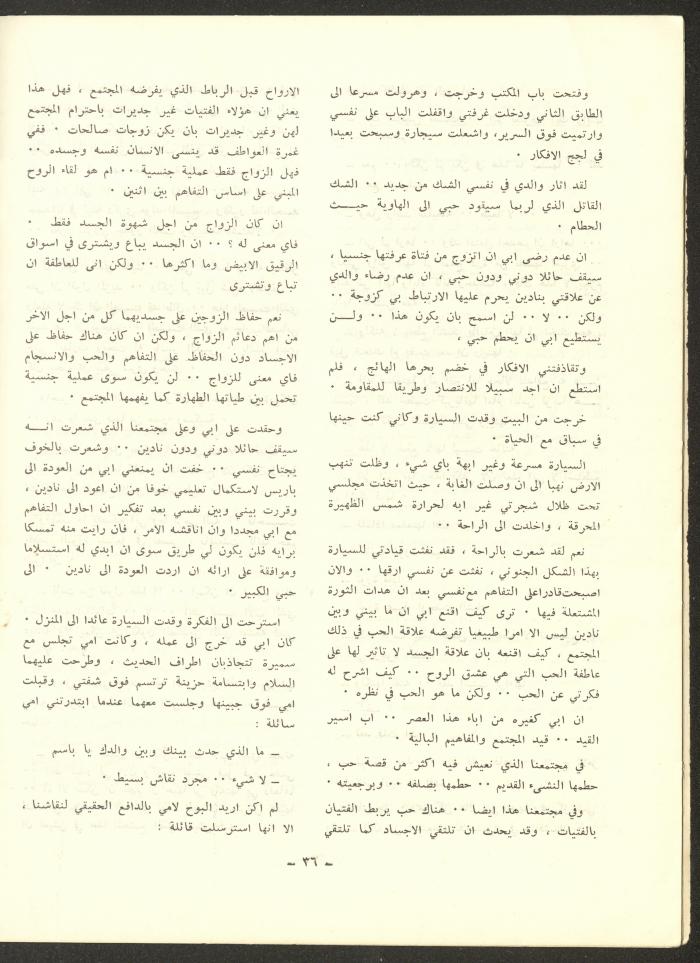 وفتحت باب المكتب وخرجت ، وهرولت مسرعا الى
الطابق الثاني ودخلت غرفتي واقفلت الباب على نفسي
وارتميت فوق السرير، واشعلت سيجارة وسبحت بعيدا
في لجج الافكار ٠
لقد اثار والدي في نفسي الشك من جديد ٠٠ الشك
القاتل الذي لربما سيقود حبي الى الهاوية حيث
الحطام ٠
ان عدم رضى ابي ان اتزوج من فتاة عرفتها جنسيا ،
سيقف حائلا دوني ودون حبي ، ان عدم رضاء والدي
عن علاقتي بنادين يحرم عليها الارتباط بي كزوجة ٠٠
ولكن ٠٠ لا ٠٠ لن اسمح بان يكون هذا ٠٠ ولن
يستطيع ابي ان يحطم حبي ،
وتقاذفتني الافكار في خضم بحرها الهائج ، فلم
استطع ان اجد سبيلا للانتصار وطريقا للمقاومة ٠
خرجت من البيت وقدت السيارة وكاني كنت حينها
في سباق مع الحياة ٠
السيارة مسرعة وغير ابهة باي شيء ، وظلت تنهب
الارض نهبا الى ان وصلت الغابة ، حيث اتخذت مجلسي
تحت ظلال شجرتي غير ابه لحرارة شمس الظهيرة
المحرقة ، واخلدت الى الراحة ٠٠
نعم لقد شعرت بالراحة ، فقد نفثت قيادتي للسيارة
بهذا الشكل الجنوني ، نفثت عن نفسي ارقها ٠٠ والان
اصبحت قادرا على التفاهم مع نفسي بعد ان هدات الثورة
المشتعلة فيها ٠ ترى كيف اقنع ابي ان ما بيني وبين
نادين ليس الا امرا طبيعيا تفرضه علاقة الحب في ذلك
المجتمع ، كيف اقنعه بان علاقة الجسد لا تاثير لها على
عاطفة الحب التي هي عشق الروح ٠٠ كيف اشرح له
فكرتي عن الحب ٠٠ ولكن ما هو الحب في نظره ٠
ان ابي كغيره من اباء هذا العصر ٠٠ اب اسير
القيد ٠٠ قيد المجتمع والمفاهيم البالية ٠
في مجتمعنا الذي نعيش فيه اكثر من قصة حب ،
حطمها النشىء القديم ٠٠ حطمها بصلفه ٠٠ وبرجعيته ٠
وفي مجتمعنا هذا ايضا ٠٠ هناك حب يربط الفتيان
بالفتيات ، وقد يحدث ان تلتقي الاجساد كما تلتقي
الارواح قبل الرباط الذي يفرضه المجتمع ، فهل هذا
يعني ان هؤلاء الفتيات غير جديرات باحترام المجتمع
لهن وغير جديرات بان يكن زوجات صالحات ٠ ففي
غمرة العواطف قد ينسى الانسان نفسه وجسده ٠٠
فهل الزواج فقط عملية جنسية ٠٠ ام هو لقاء الروح
المبني على اساس التفاهم بين اثنين ٠
ان كان الزواج من اجل شهوة الجسد فقط ٠
فاي معنى له ؟ ٠٠ ان الجسد يباع ويشترى في اسواق
الرقيق الابيض وما اكثرها ٠٠ ولكن انى للعاطفة ان
تباع وتشترى
نعم حفاظ الزوجين على جسديهما كل من اجل الاخر
من اهم دعائم الزواج ، ولكن ان كان هناك حفاظ على
الاجساد دون الحفاظ على التفاهم والحب والانسجام
فاي معنى للزواج ٠٠ لن يكون سوى عملية جنسية
تحمل بين طياتها الطهارة كما يفهمها المجتمع ٠
وحقدت على ابي وعلى مجتمعنا الذي شعرت انه
سيقف حائلا دوني ودون نادين ٠٠ وشعرت بالخوف
يجتاح نفسي ٠٠ خفت ان يمنعني ابي من العودة الى
باريس لاستكمال تعليمي خوفا من ان اعود الى نادين ،
وقررت بيني وبين نفسي بعد تفكير ان احاول التفاهم
مع ابي مجددا وان اناقشه الامر ، فان رايت منه تمسكا
برايه فلن يكون لي طريق سوى ان ابدي له استسلاما
وموافقة على ارائه ان اردت العودة الى نادين ٠ الى
حبي الكبير ٠
استرحت الى الفكرة وقدت السيارة عائدا الى المنزل ٠
كان ابي قد خرج الى عمله ، وكانت امي تجلس مع
سميرة تتجاذبان اطراف الحديث ، وطرحت عليهما
السلام وابتسامة حزينة ترتسم فوق شفتي ، وقبلت
امي فوق جبينها وجلست معهما عندما ابتدرتني امي
سائلة :
ــ ما الذي حدث بينك وبين والدك يا باسم
ــ لا شيء ٠٠ مجرد نقاش بسيط ٠
لم اكن اريد البوح لامي بالدافع الحقيقي لنقاشنا ،
الا انها استرسلت قائلة :
ــ ٣٦ ــ